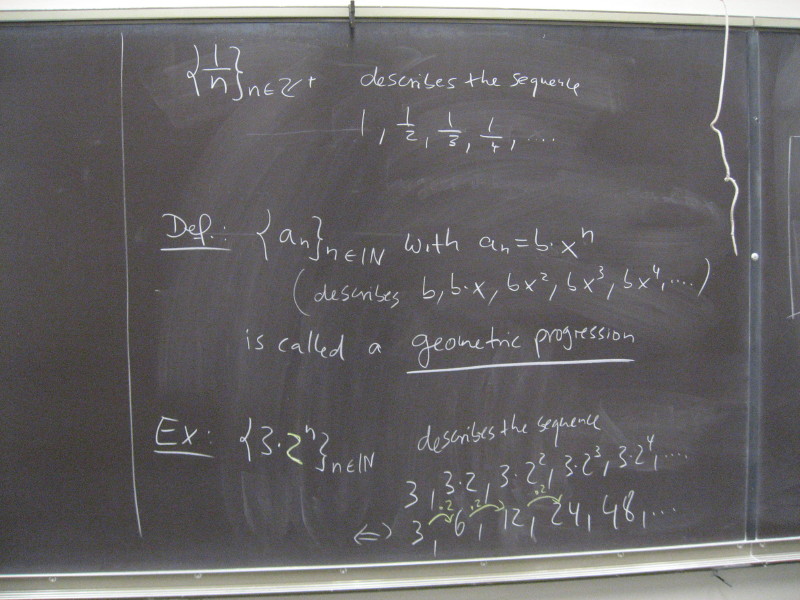 {1/n}n∈ℤ⁺ describes the sequence
1, 1/2, 1/3, 1/4, ....
Def.: {aₙ}n∈ℕ with aₙ = b·xⁿ
(describes b, b·x, bx², bx³, bx⁴, ....)
is called a geometric progression
Ex: {3·2ⁿ}n∈ℕ describes the sequence
3, 3·2, 3·2², 3·2³, 3·2⁴, ....
·2 ·2 ·2
⇔ 3, 6, 12, 24, 48, ....